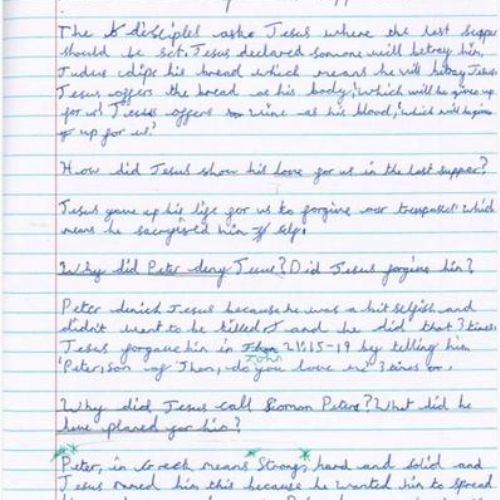 The disciples asks Jesus where the last supper
should be set. Jesus declared somone will betray him,
Judus dips his bread which means he will betray Jesus.
Jesus offers the bread as his body, 'which will be given up
for us' Jesus offers wine as his blood, 'which will be given
up for us.'
How did Jesus show his love for us in the last supper?
Jesus gave up his life for us to forgive our trespasses which
means he sacrifised him self.
Why did Peter deny Jesus? Did Jesus forgive him?
Peter denied Jesus because he was a bit selfish and
didn't want to be killed and he did that 3 times.
Jesus forgave him in John 21:15-19 by telling him
'Peter, son of Jhon, do you love me' 3 times
Why did Jesus call Siomon Peter? What did he
have planed for him?
Peter, in Greek means Strong, hard and solid and
Jesus named him this because he wanted him to spread